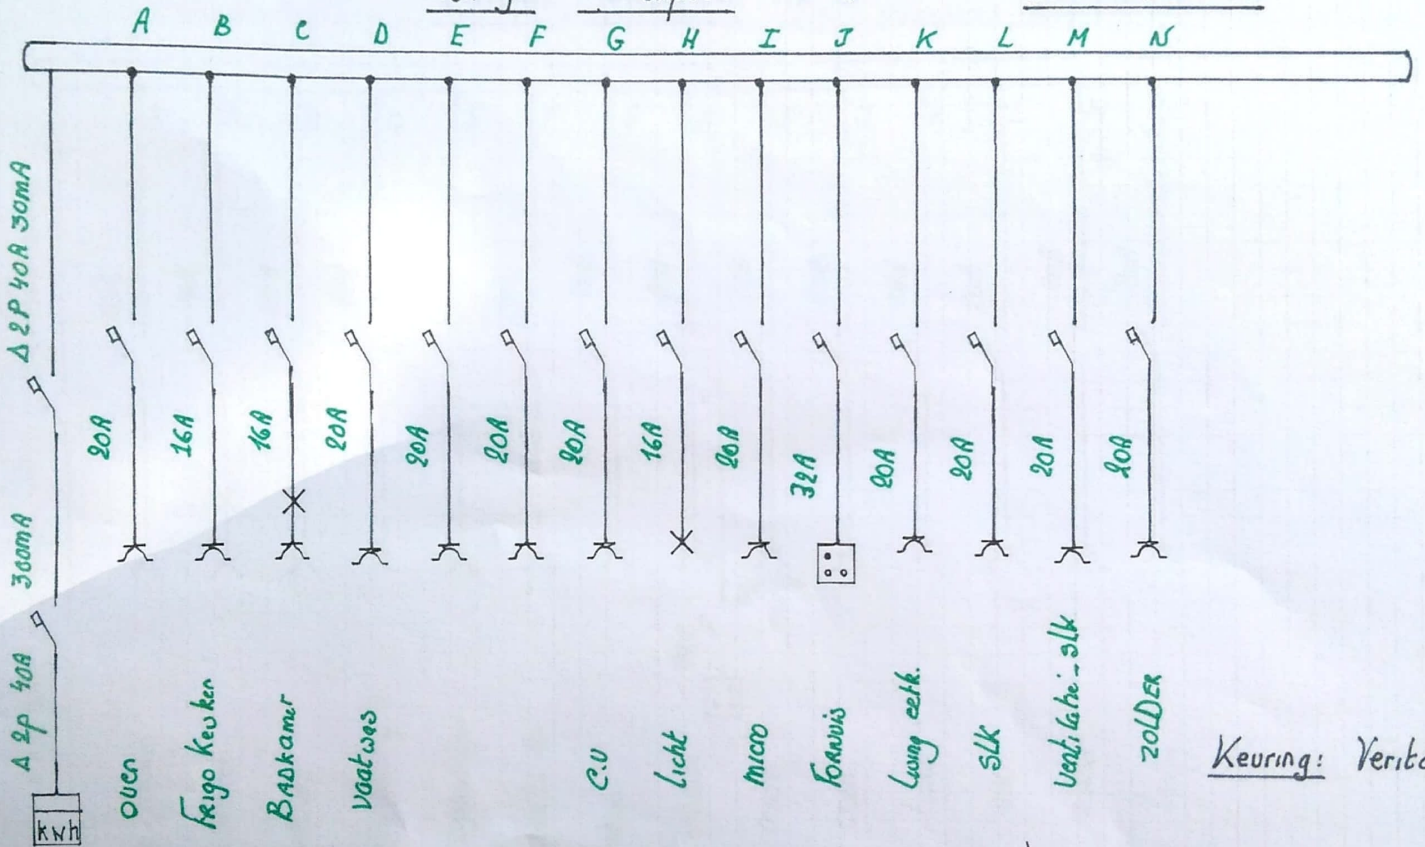 A B C D E F G H I J K L M N
Δ 2P 40A 30mA
300mA
Δ 2P 40A
kwh
20A 16A 16A 20A 20A 20A 20A 16A 20A 32A 20A 20A 20A 20A
Oven
Frigo Keuken
Badkamer
Vaatwas
C.V
Licht
Micro
Fornuis
Living eetk.
SLK
Ventilatie - SLK
ZOLDER
Keuring: